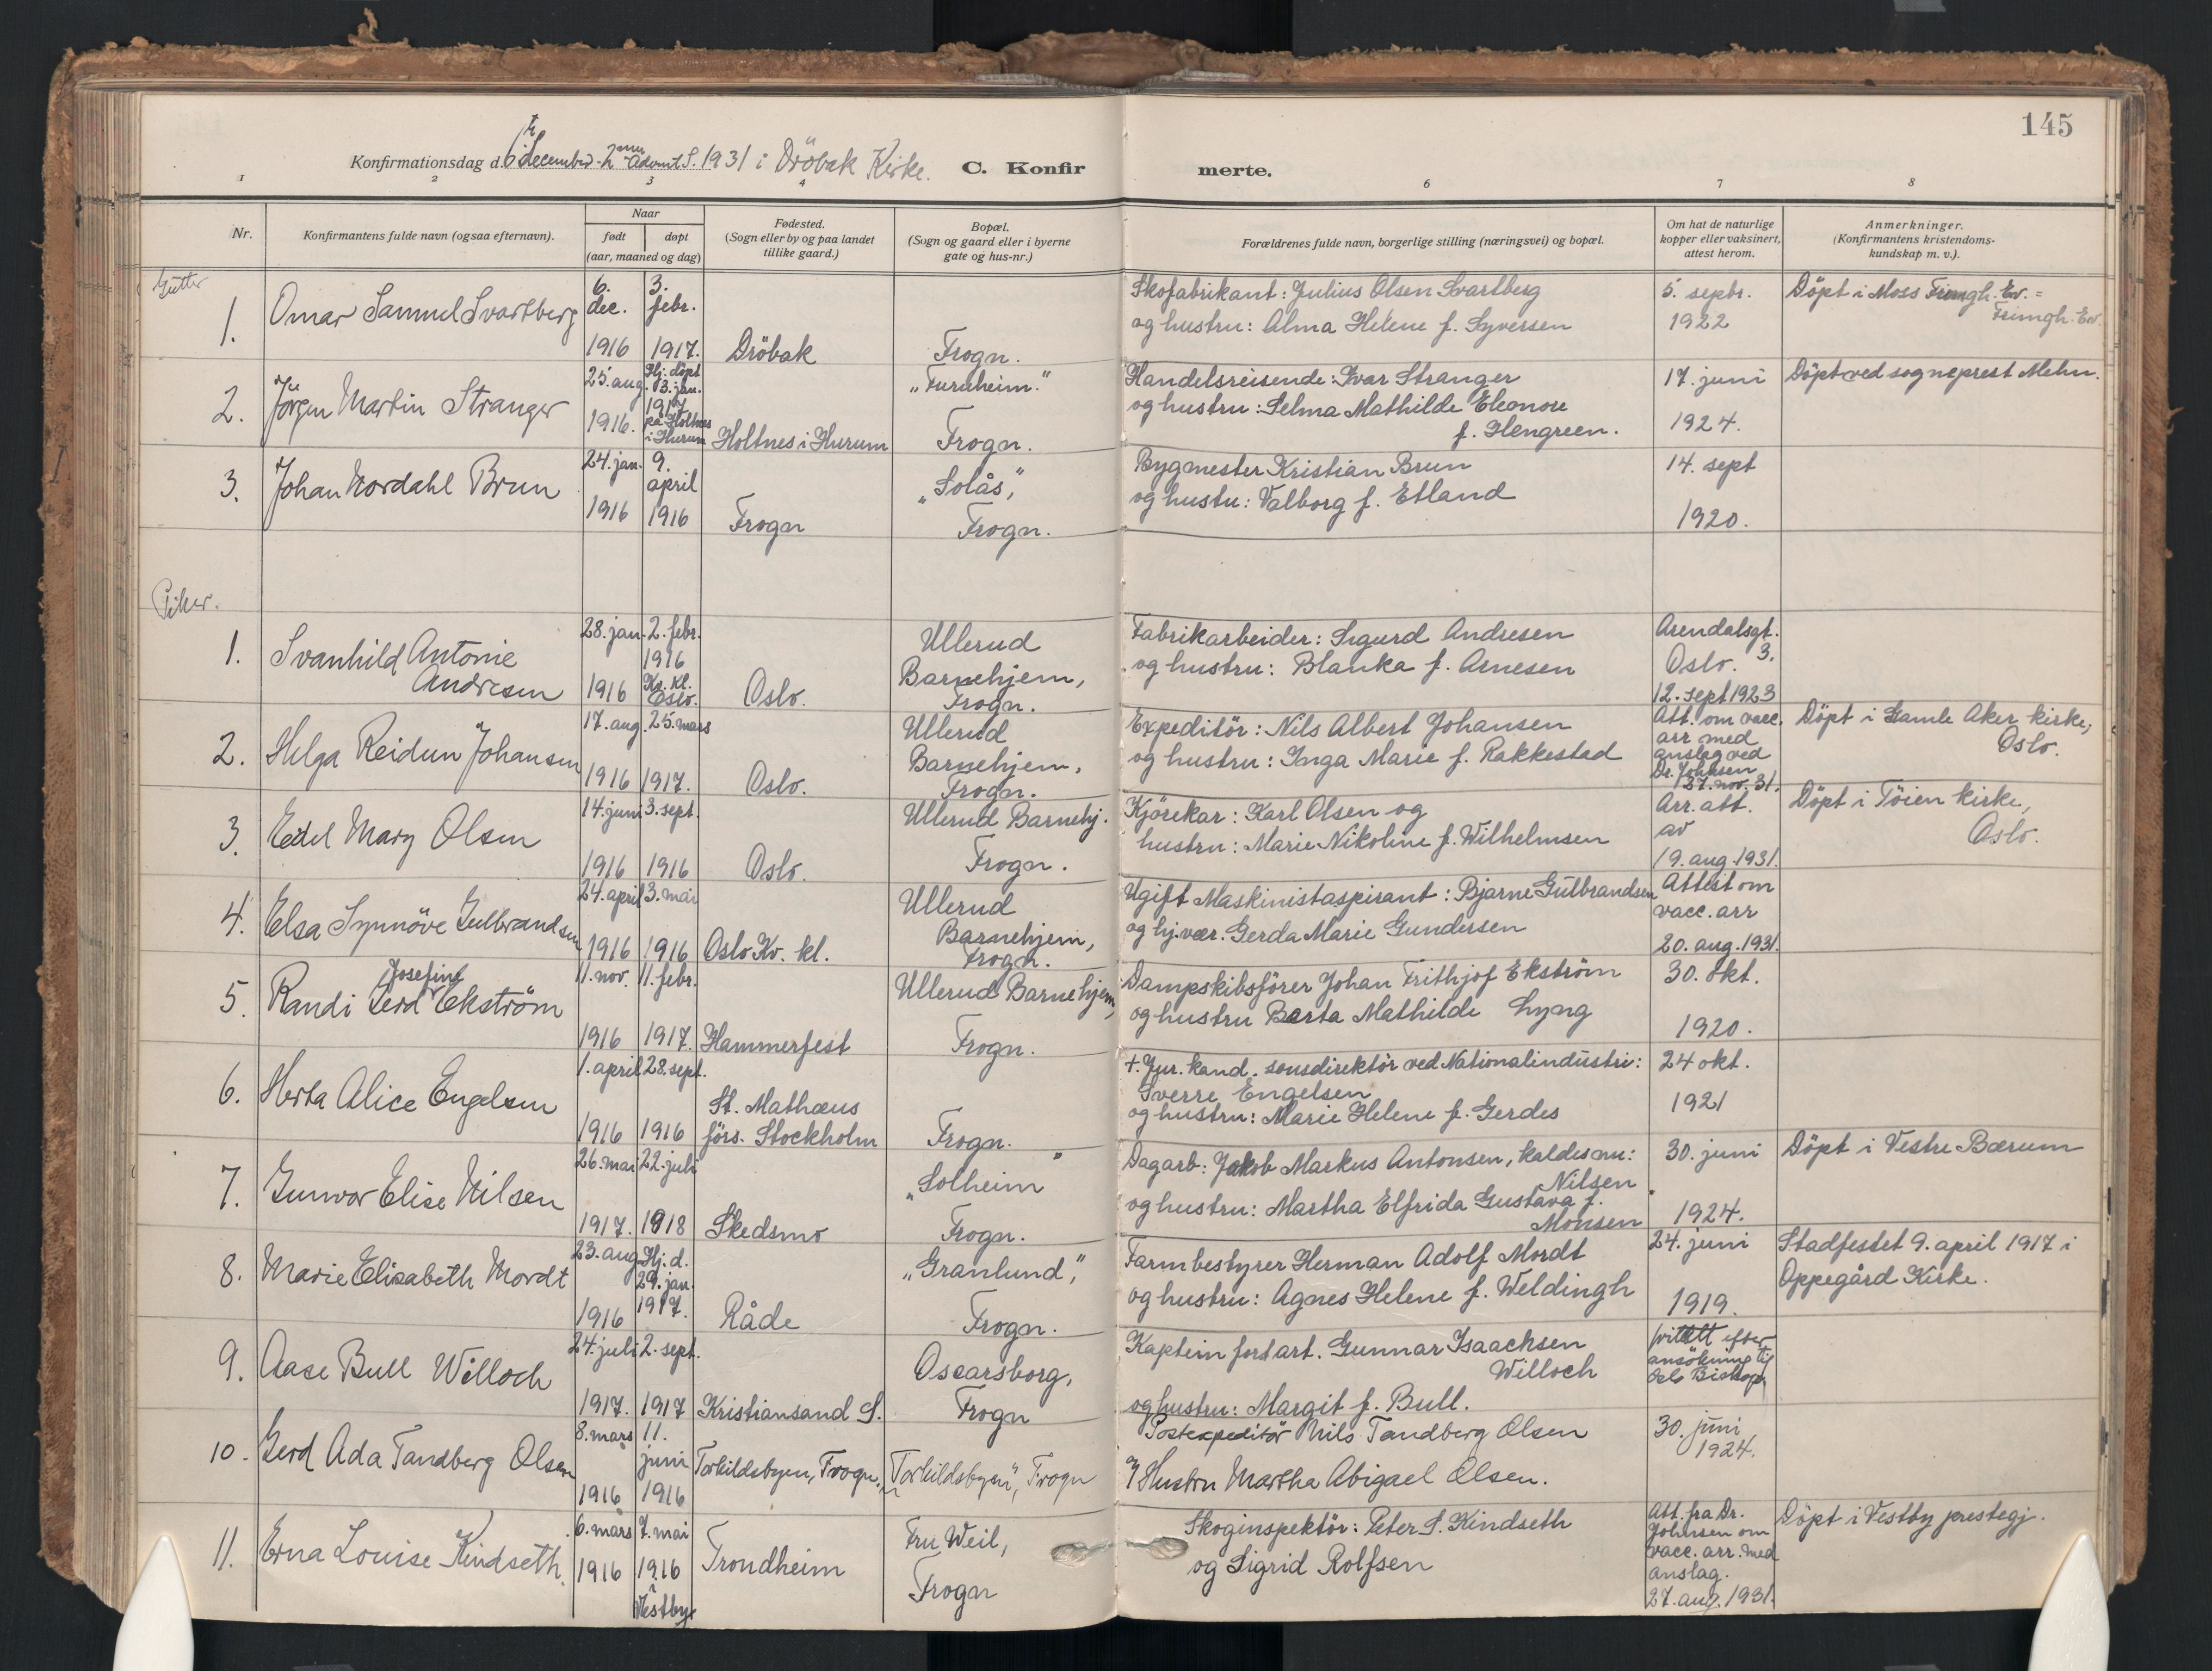 145
Konfirmationsdag d. 6te december - 2nen Advent S. 1931 i Dröbak Kirke. C. Konfirmerte.
1 2 3 4 6 7 8
Nr.
Konfirmantens fulde navn (ogsaa efternavn).
Naar
født
døpt
(aar, maaned og dag)
Fødested.
(Sogn eller by og paa landet
tillike gaard.)
Bopæl.
(Sogn og gaard eller i byerne
gate og hus-nr.)
Forældrenes fulde navn, borgerlige stilling (næringsvei) og bopæl.
Om hat de naturlige
kopper eller vaksinert,
attest herom.
Anmerkninger.
(Konfirmantens kristendoms-
kundskap m. v.).
Gutter
1.
Omar Samuel Svartberg
6.
dec.
1916
3.
febr.
1917.
Dröbak
Frogn.
Skofabrikant: Julius Olsen Svartberg
og hustru: Alma Helene f. Syversen
5. septbr.
1922
Döpt i Moss Frimgh. Ev. =
Frimgh. Ev.
2.
Jörgen Martin Stranger
25. aug.
1916.
Hj. döpt
13. jan.
1917
på Holtnes
i Hurum
Holtnes i Hurum
„Furuheim."
Frogn.
Handelsreisende: Ivar Stranger
og hustru: Selma Mathilde Eleonore
f. Hengreen.
17. juni
1924.
Döpt ved sogneprest Mehn.
3.
Johan Nordahl Brun
24. jan.
1916
9.
april
1916
Frogn
„Solås",
Frogn.
Bygmester Kristian Brun
og hustu: Valborg f. Etland
14. sept
1920.
Piker.
1.
Svanhild Antonie
Andresen
28. jan.
1916
2. febr.
1916
Kv. kl.
Oslo.
Oslo.
Ullerud
Barnehjem,
Frogn.
Fabrikarbeider: Sigurd Andresen
og hustru: Blanka f. Arnesen
Arendalsgt.
Oslo. 3.
12. sept 1923
2.
Helga Reidun Johansen
17. aug.
1916
25. mars
1917.
Oslo.
Ullerud
Barnehjem,
Frogn.
Expeditör: Nils Albert Johansen
og hustru: Inga Marie f. Rakkestad
Att. om vacc.
arr med
anslag ved
Dr. Johnsen
27. nov. 31.
Döpt i Gamle Aker kirke,
Oslo.
3.
Eidel Mary Olsen
14. juni
1916
3. sept.
1916
Oslo.
Ullerud Barnehj.
Frogn.
Kjörekar: Karl Olsen og
hustru: Marie Nikoline f. Wilhelmsen
Arr. att.
av
19. aug. 1931.
Döpt i Töien kirke,
Oslo.
4.
Elsa Synnöve Gulbrandsen
24. april
1916
3. mai
1916
Oslo Kv. kl.
Ullerud
Barnehjem,
Frogn.
Ugift Maskinistaspirant: Bjarne Gulbrandsen
og hj. vær. Gerda Marie Gundersen
Attest om
vacc. arr
20. aug. 1931.
5.
Josefine
Randi Gerd Ekström
11. nov.
1916
11. febr.
1917.
Hammerfest
Ullerud Barnehjem,
Frogn.
Dampskibsförer Johan Frithjof Ekström
og hustru Berta Mathilde Lyng
30. okt.
1920.
6.
Herta Alice Engelsen
1. april
1916
28. sept.
1916
St. Mathæus
förs. Stockholm
Frogn.
+ Jur. kand. sousdirektör ved Nationalindustri:
Sverre Engelsen
og hustru: Marie Helene f. Gerdes
24 okt.
1921
7.
Gunvor Elise Nilsen
26. mai
1917.
22. juli
1918
Skedsmo
„Solheim"
Frogn.
Dagarb: Jakob Markus Antonsen, kaldes nu:
Nilsen
og hustru: Martha Elfrida Gustava f.
Monsen
30. juni
1924.
Döpt i Vestre Bærum
8.
Marie Elisabeth Mordt
23. aug.
1916
Hj. d.
29. jan.
1917.
Råde
„Granlund",
Frogn.
Farmbestyrer Herman Adolf Mordt
og hustru: Agnes Helene f. Weldingh
24. juni
1919.
Stadfestet 9. april 1917 i
Oppegård Kirke.
9.
Aase Bull Willoch
24. juli
1917.
2. sept.
1917
Kristiansand S.
Oscarsborg,
Frogn
Kaptein fort art. Gunnar Isaachsen
Willoch
og hustru: Margit f. Bull.
fritatt efter
ansökning til
Oslo Biskop
10.
Gerd Ada Tandberg Olsen
8. mars
1916
11.
juni
1916
Torkildsbyen, Frogn.
„Torkildsbyen", Frogn
Postexpeditör Nils Tandberg Olsen
og Hustru Martha Abigael Olsen.
30. juni
1924.
11.
Erna Louise Kindseth.
6. mars
1916
7. mai
1916
i
Vestby
Trondheim
Fru Weil,
Frogn
Skoginspektör: Peter S. Kindseth
og Sigrid Rolfsen
Att. fra Dr.
Johnsen om
vacc. arr. med
anslag.
27. aug. 1931.
Döpt i Vestby prestegj.